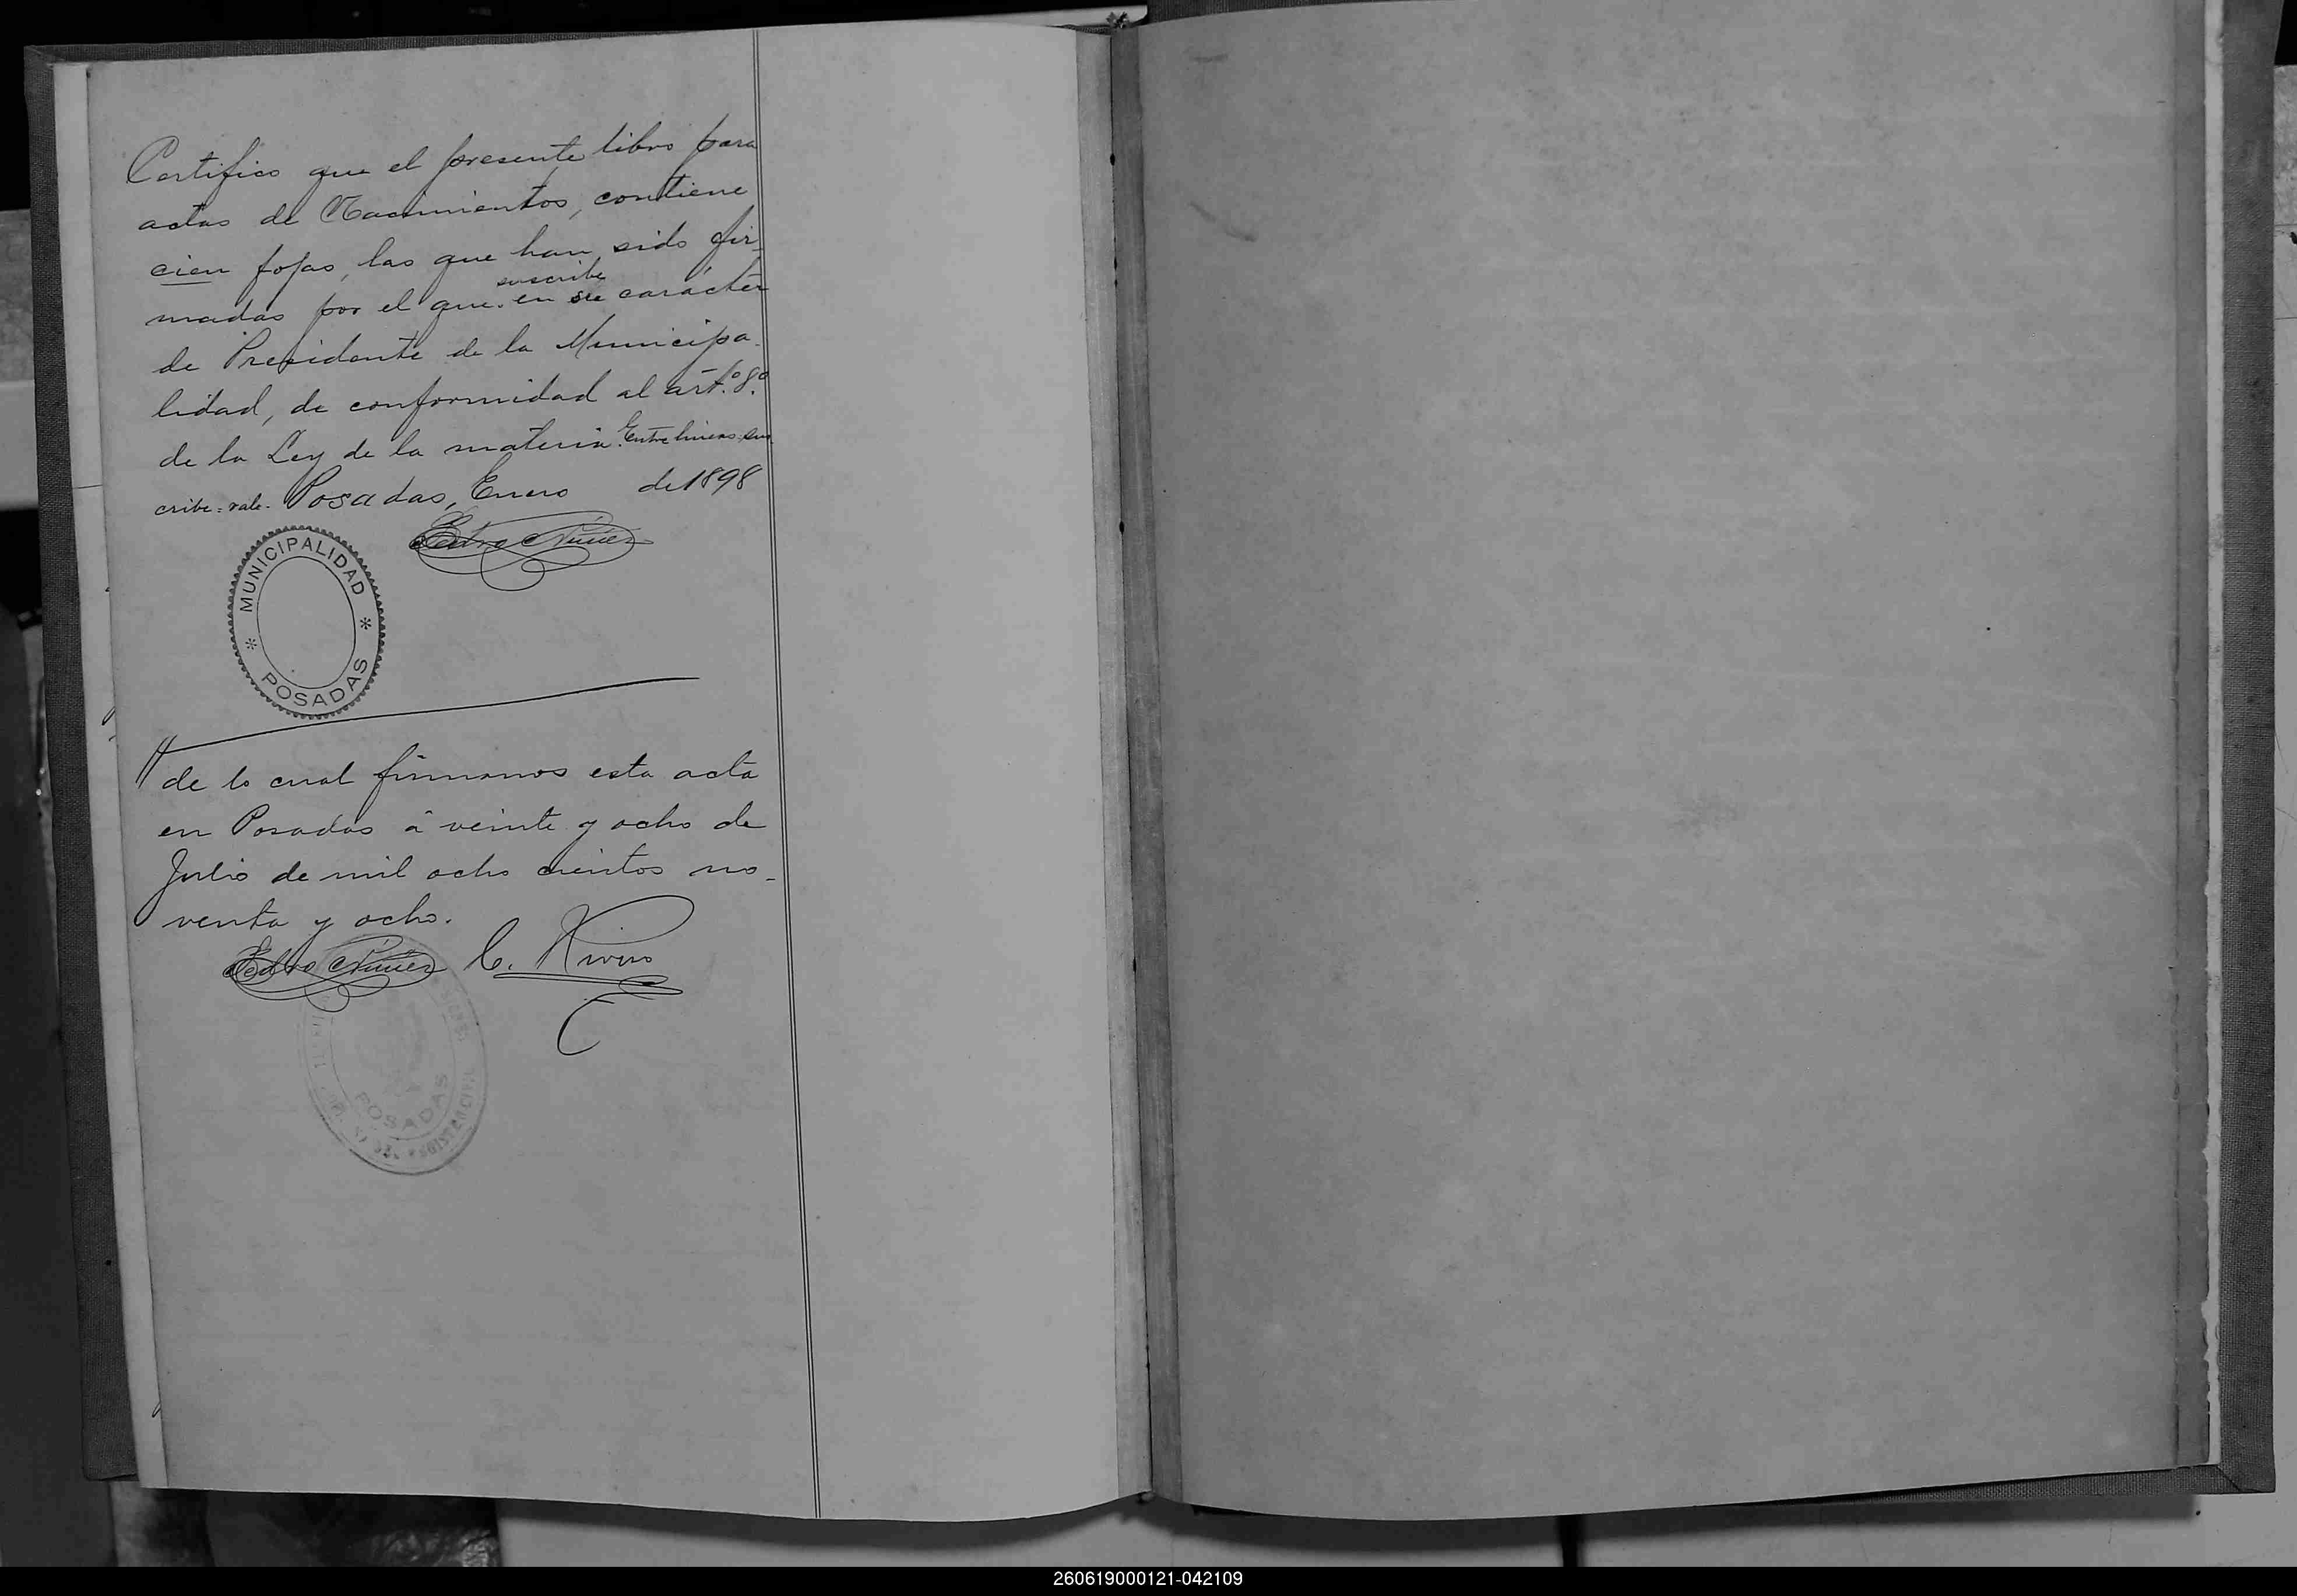 Certifico que el presente libro para
actas de Nacimientos, contiene
cien fojas, las que han sido fir-
suscribe
madas por el que en su carácter
de Presidente de la Municipa-
lidad, de conformidad al art.º 8.º
de la Ley de la materia. Entre lineas sus
cribe = vale. Posadas, Enero de 1898
Pedro Núñez
MUNICIPALIDAD
POSADAS
// de lo cual firmamos esta acta
en Posadas á veinte y ocho de
Julio de mil ocho cientos no-
venta y ocho.
Pedro Núñez C. Rivero
POSADAS
REGISTRO CIVIL
260619000121-042109